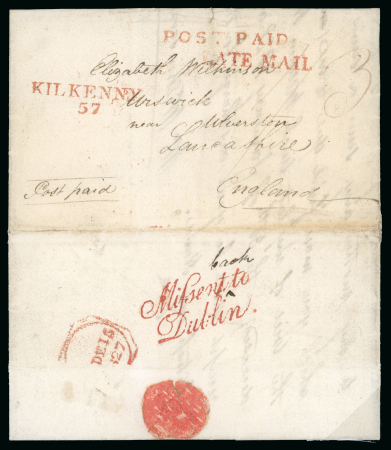 POST PAID
LATE MAIL
Elizabeth Wilkinson
KILKENNY
57
Urswick
near Ulverston
Lancashire
Post paid
England
back
Missent to
^
Dublin.
DE 18
827